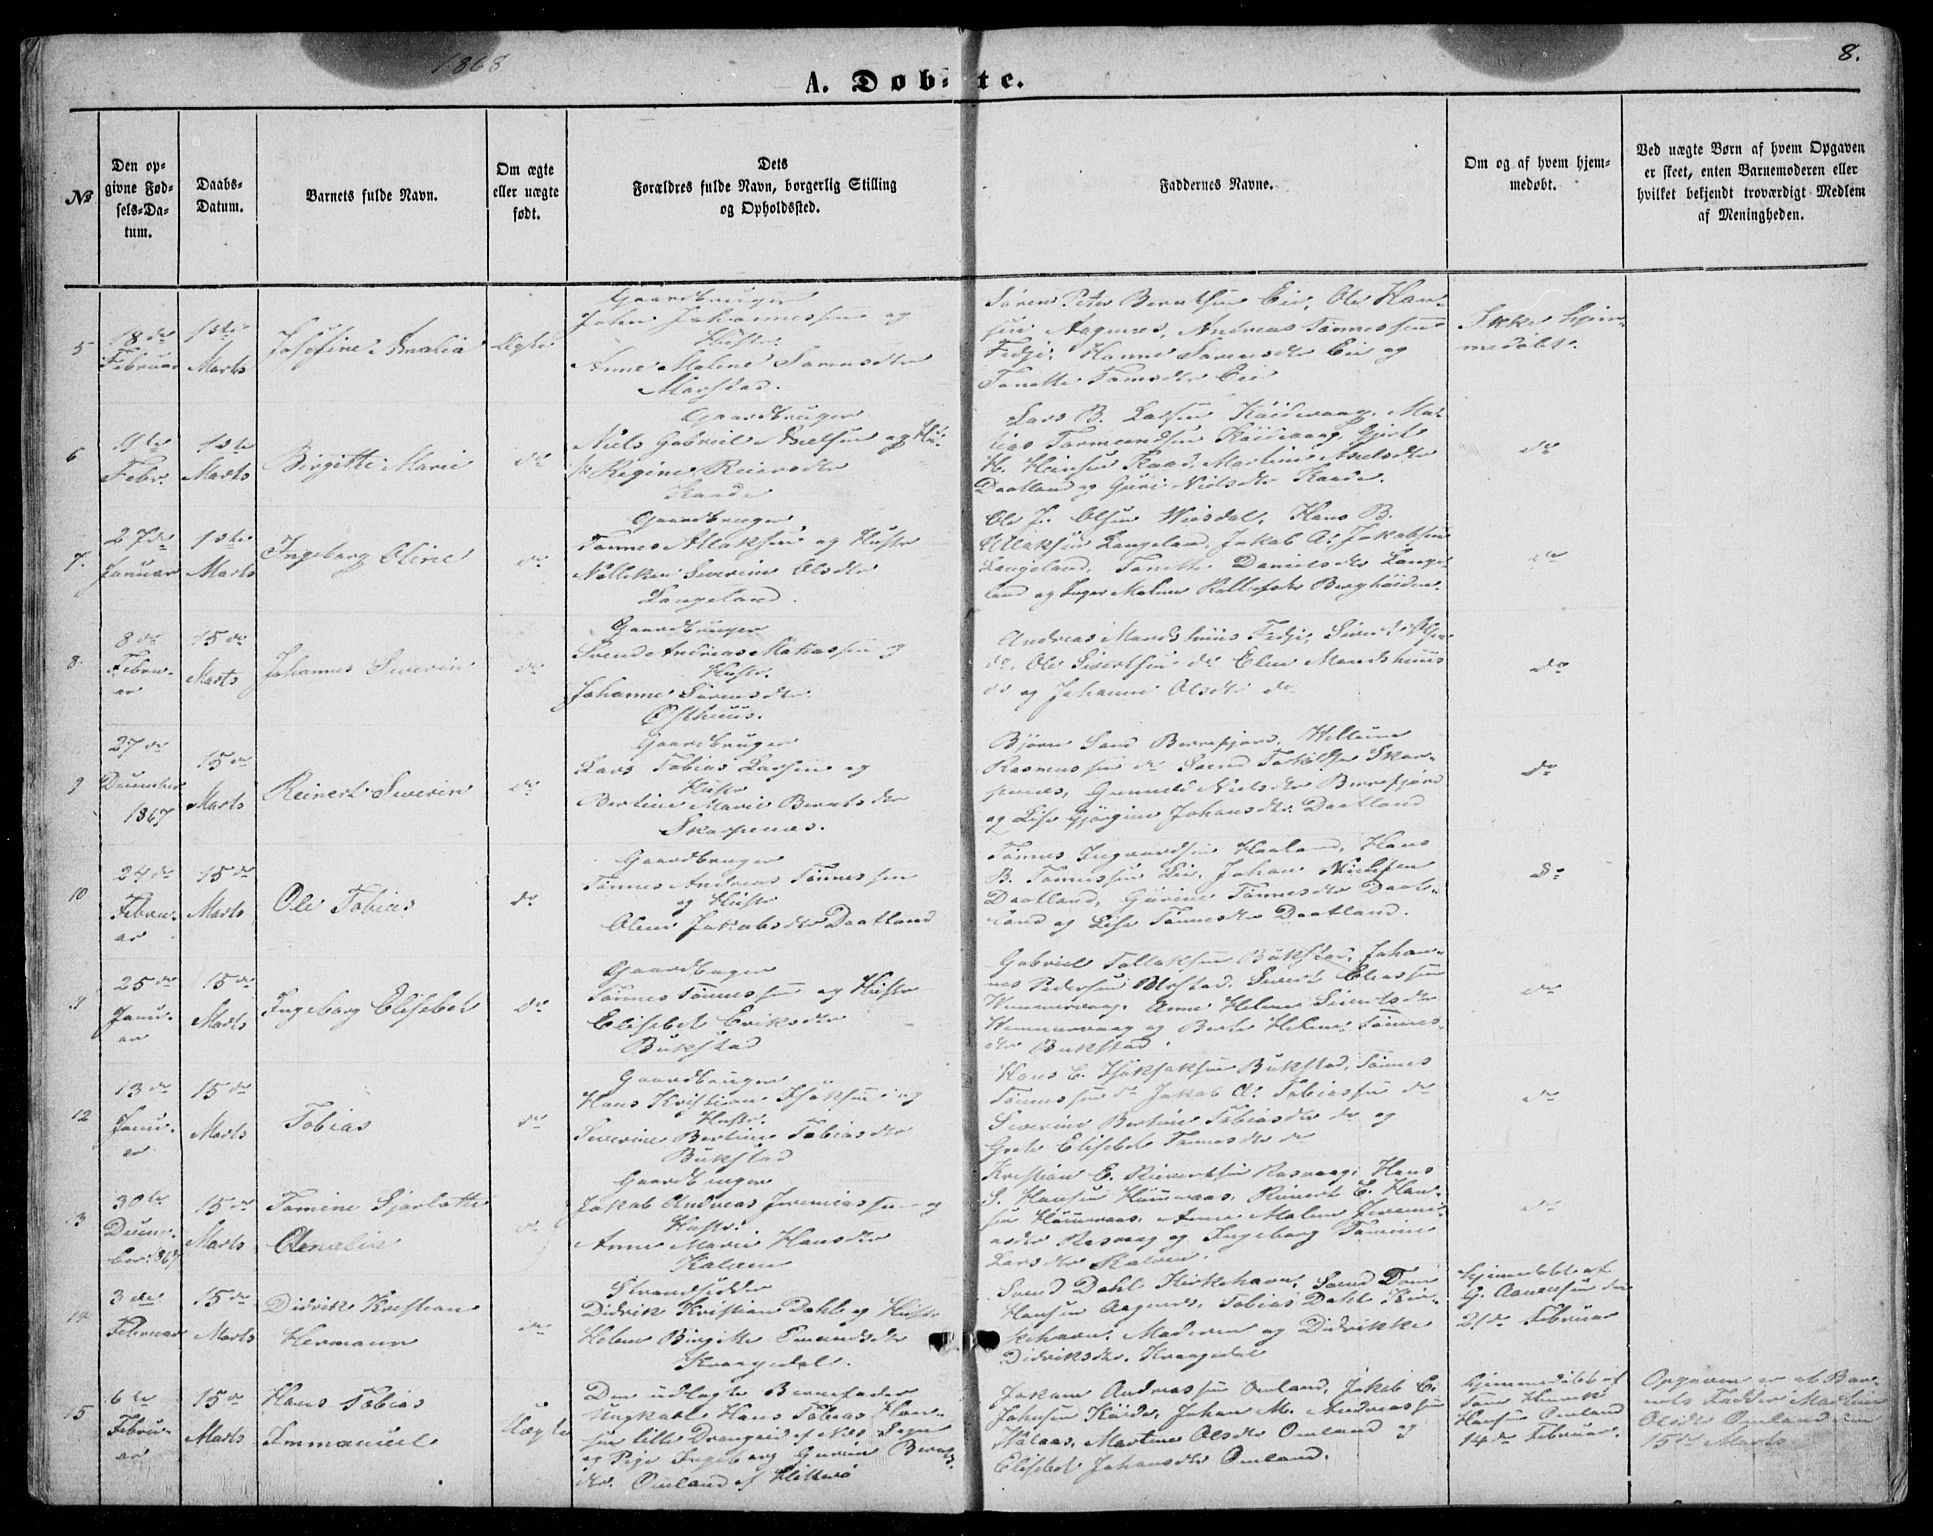 1868
8.
A. Døbte.
№
Den op-
givne Fød-
sels-Da-
tum.
Daabs-
Datum.
Barnets fulde Navn.
Om ægte
eller uægte
født.
Dets
Forældres fulde Navn, borgerlig Stilling
og Opholdssted.
Faddernes Navne.
Om og af hvem hjem-
medøbt.
Ved uægte Børn af hvem Opgaven
er skeet, enten Barnemoderen eller
hvilket bekjendt troværdigt Medlem
af Meningheden.
5
18de
Februar
1ste
Marts
Josefine Amalia
Ægte
Gaardbruger
John Johannessen og
Hustr.
Anne Malene Sørensdtr
Marstad.
Søren Peter Berntsen Eie, Ole Han-
sen Aagenes, Andreas Tønnessen
Fedje, Hanne Sørensdtr Eie og
Tonette Tomsdtr Eie
Ikke hjem-
medøbt.
6
9de
Febr.
1ste
Marts
Birgitte Marie
do
Gaardbruger
Niels Gabriel Axelsen og Hu-
str Regine Reiersdtr
Kaade
Lars B. Larsen Køidevaag, Mat-
tias Tormundsen Køidevaag, Gjert
H. Hansen Kaad, Martine Axelsdtr
Daatland og Guri Nielsdtr Kaade.
do
7.
27de
Januar
1ste
Marts
Ingeborg Oline
do
Gaardbruger
Tønnes Atlaksen og Hustr
Severine Olsdtr
Langeland.
Ole J. Olsen Hans B.
Atlaksen Langeland, Jakob A. Jakobsen
Langeland, Tonette Danielsdtr Lange-
land og Inger Malene
do
8.
8de
Febru-
ar
15de
Marts
Johannes Severin
do
Gaardbruger
Svend Andreas Matiassen og
Hustr.
Johanne Sørensdtr
Østhuus.
Andreas Mandshuus Fedje, Sivert
do, Ole Sivertsen do Elen Mandshuus
do og Johanne Olsdtr do
do
9
27de
December
1867
15de
Marts
Reinert Severin
do
Gaardbruger
Lars Tobias Larsen og
Hustr
Bertine Marie Berntsdtr
Skarpenæs.
Bjørn Sand Berrefjord, Willum
Rasmussen do Svend Torkildsen Skar-
penæs, Gunnild Nielsdtr Berrefjord
og Lise Gjørgine Johansdtr Daatland
do
10
24de
Febru-
ar
15de
Marts
Ole Tobias
do
Gaardbruger
Tønnes Andreas Tønnessen
og Hustr
Olene Jakobsdtr Daatland
Tønnes Ingvardsen Haaland, Hans
B. Tønnessen Eie, Johan Nielsen
Daatland, Gurine Tønnesdtr Daat-
land og Lise Tønnesdtr Daatland.
do
11
25de
Janu-
ar
15de
Marts
Ingeborg Elisebet
do
Gaardbruger
Tønnes Tønnessen og Hustr
Elisebet Eriksdtr
Bukstad
Gabriel Tollaksen Bukstad, Johan-
nes Pedersen Sivert Eliassen
Anne Helene Sivertsdtr
og Berte Helene Tønnes-
dtr Bukstad.
do
12
13de
Janu-
ar
15de
Marts
Tobias
do
Gaardbruger
Hans Kristian Isaksen og
Hustr.
Severine Bertine Tobiasdtr
Bukstad
Hans C. Isaksen Bukstad, Tønnes
Tønnessen do Jakob A. Tobiassen do
Severine Bertine Tobiasdtr do og
Grete Elisebet Tønnesdtr do
do
13
30te
Decem-
ber 1867
15de
Marts
Tomine Sjarlotte
Amalia
do
Gaardbruger
Jakob Andreas Jeremiassen og
Hustr.
Anne Marie Hansdtr
Kalven
Kristian E. Reinertsen Rasvaag, Hans
S. Hansen Reinert E. Han-
sen Anne Malene Jeremi-
asdtr Rasvaag og Ingeborg Tomine
Larsdtr Kalven.
do
14
3die
Februar
15de
Marts
Didrik Kristian
Hermann
do
Strandsidder
Didrik Kristian Dahl og Hustr
Helene Birgitte
Kraagedal.
Svend Dahl Kirkehavn, Svend Tom
Hansen Aagenes, Tobias Dahl Kir-
kehavn, Maderen og Didrikke
Didriksdtr. Kraagedal
Hjemmedøbt af
G. Aanensen den
21de Februar
15
6te
Febru-
ar
15de
Marts
Hans Tobias
Immanuel
Uægte
Den udlagte Barnefader
Ungkarl Hans Tobias Han-
sen lille Drangeid af Nes Sogn
og Pige Ingeborg Gurine Bernts-
dtr. Omland af Hitterø
Jokum Andreassen Omland, Jakob E.
Johnsen Køide, Johan M. Andreassen
Martine Olsdtr Omland og
Elisebet Johansdtr Omland.
Hjemmedøbt af
Tom Henrik
Hansen Omland
14de Februar.
Opgaven er af Bar-
nets Fadder Martine
Olsdtr Omland
15de Marts